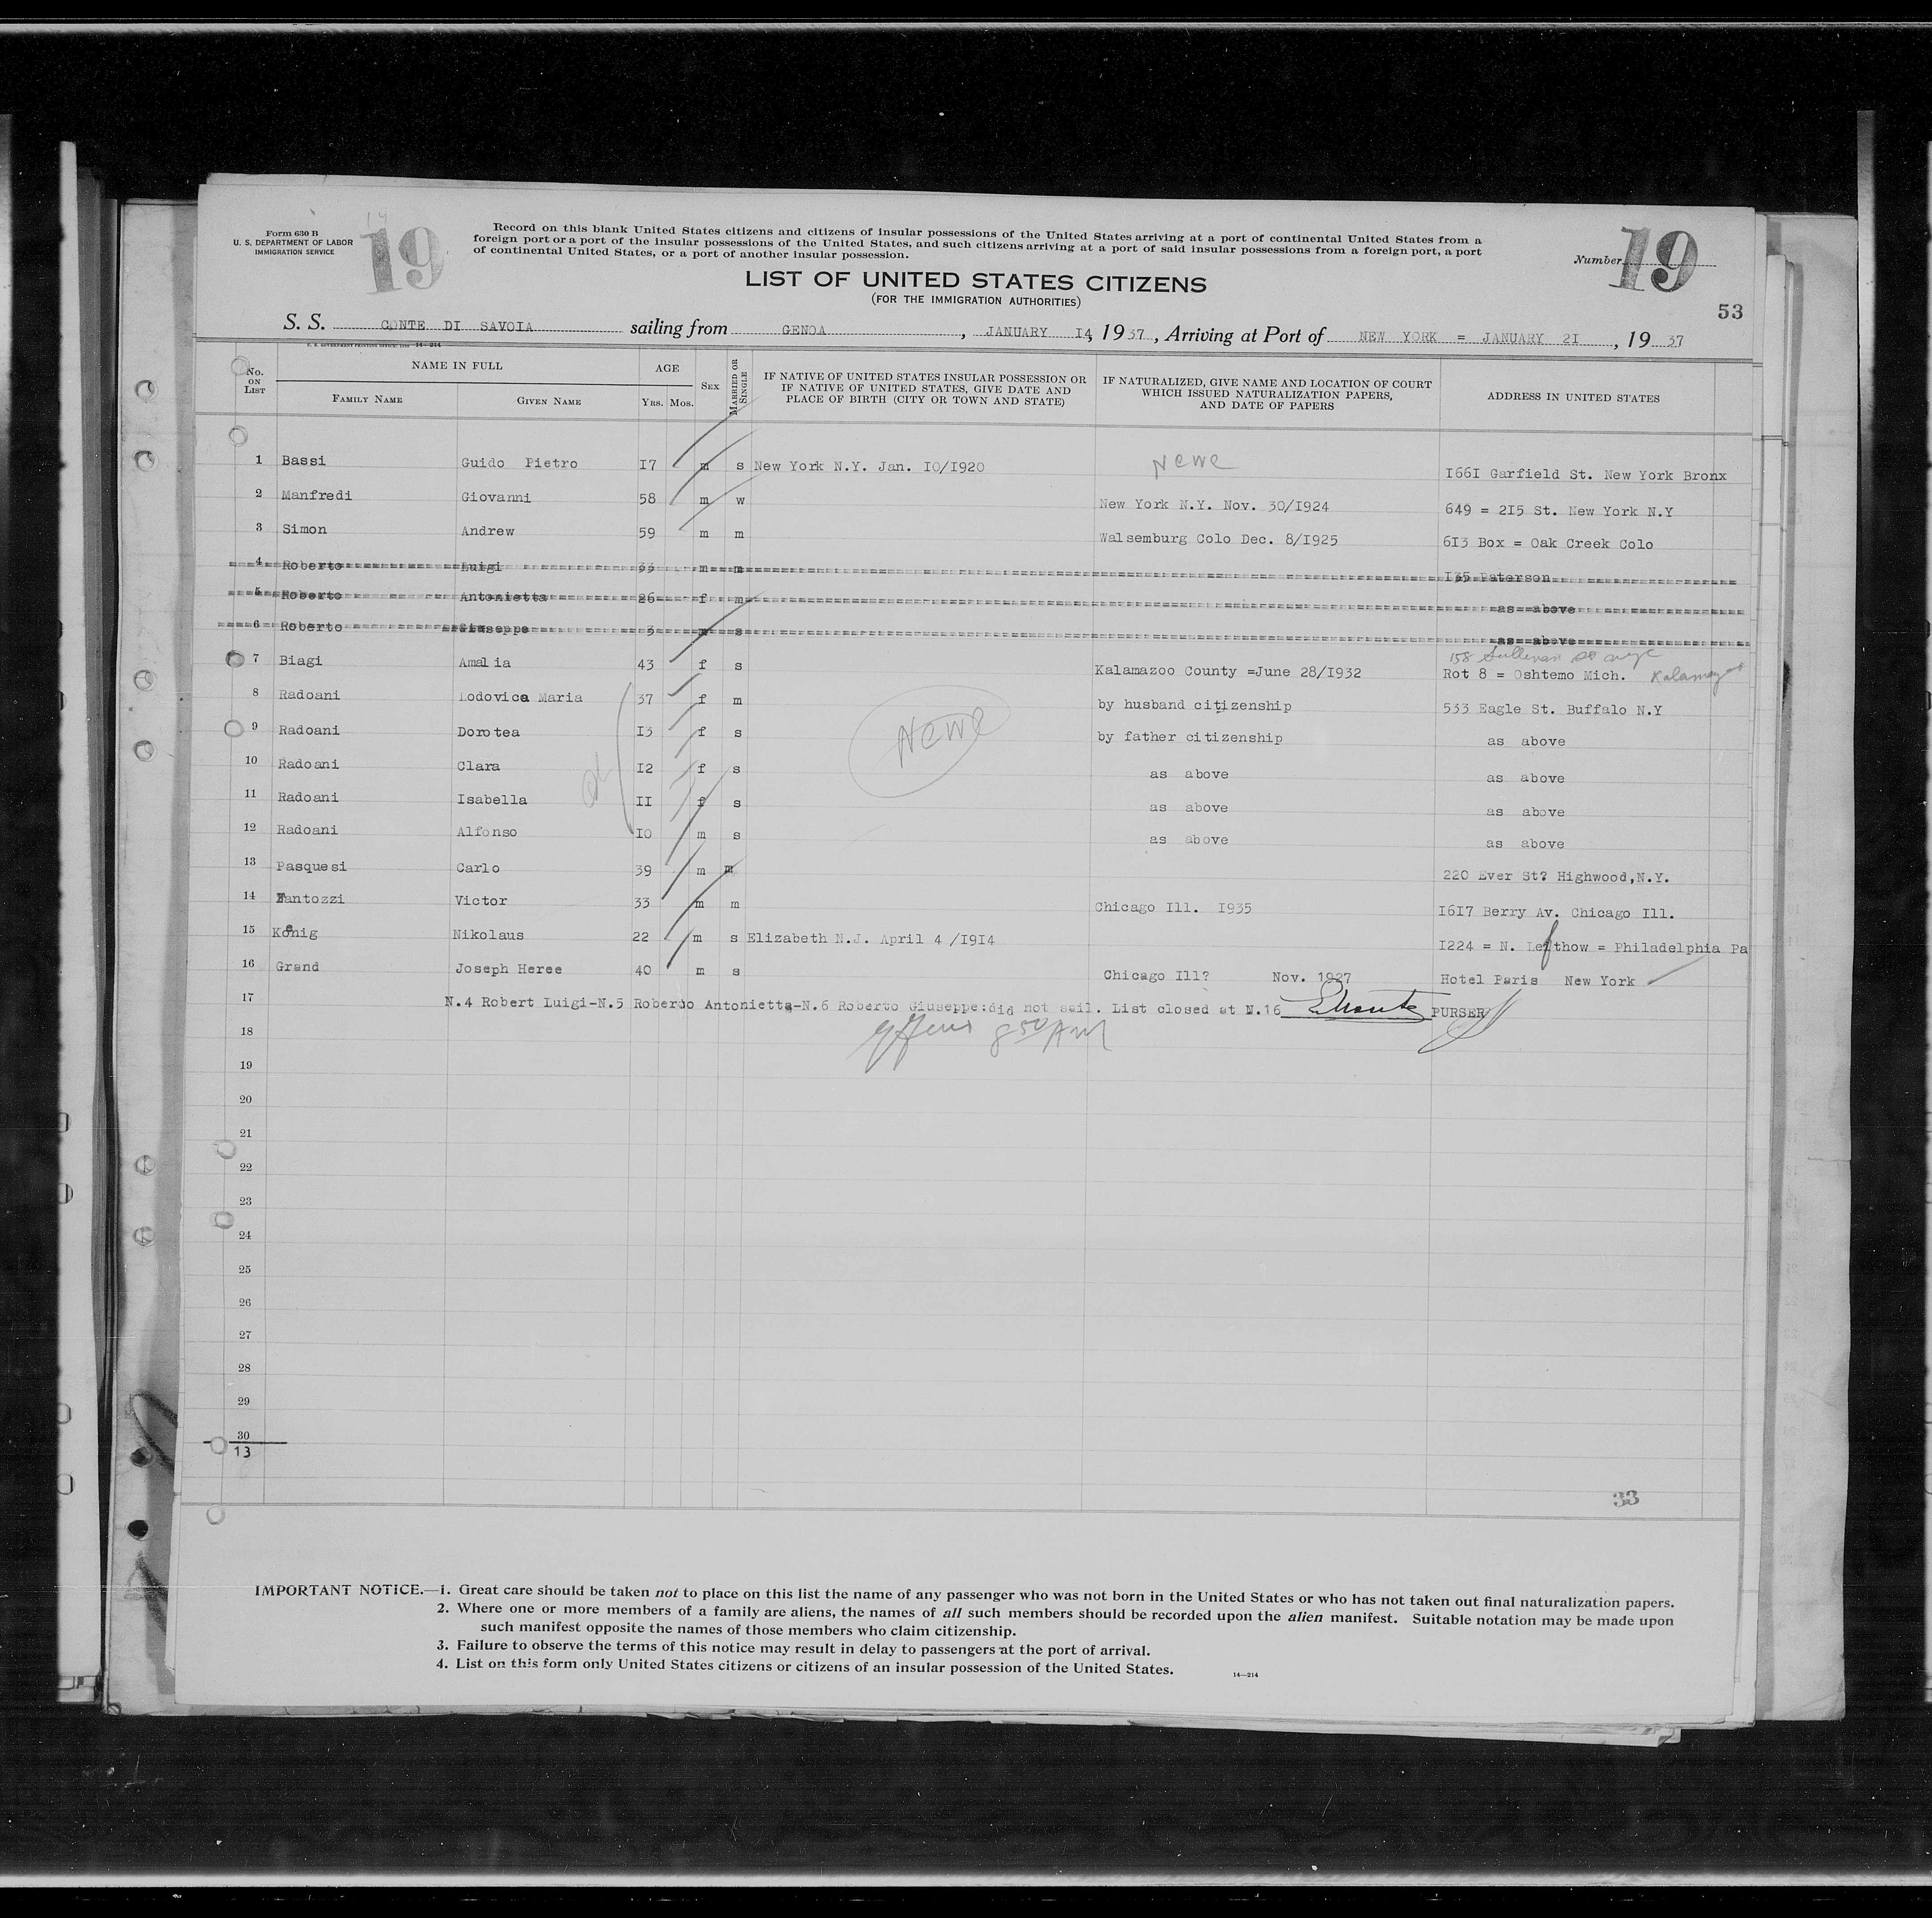 Form 630 B
U. S. DEPARTMENT OF LABOR
IMMIGRATION SERVICE
19
Record on this blank United States citizens and citizens of insular possessions of the United States arriving at a port of continental United States from a
foreign port or a port of the insular possessions of the United States, and such citizens arriving at a port of said insular possessions from a foreign port, a port
of continental United States, or a port of another insular possession.
Number 19
LIST OF UNITED STATES CITIZENS
(FOR THE IMMIGRATION AUTHORITIES)
53
S. S. CONTE DI SAVOIA sailing from GENOA , JANUARY I4, 1937 , Arriving at Port of NEW YORK = JANUARY 2I , 19 37
14—214
No. ON LIST
NAME IN FULL
FAMILY NAME
GIVEN NAME
AGE
YRS. MOS.
SEX
MARRIED OR SINGLE
IF NATIVE OF UNITED STATES INSULAR POSSESSION OR
IF NATIVE OF UNITED STATES, GIVE DATE AND
PLACE OF BIRTH (CITY OR TOWN AND STATE)
IF NATURALIZED, GIVE NAME AND LOCATION OF COURT
WHICH ISSUED NATURALIZATION PAPERS,
AND DATE OF PAPERS
ADDRESS IN UNITED STATES
1 Bassi Guido Pietro I7 m s New York N.Y. Jan. IO/I920 I66I Garfield St. New York Bronx
2 Manfredi Giovanni 58 m w New York N.Y. Nov. 30/I924 649 = 2I5 St. New York N.Y
3 Simon Andrew 59 m m Walsemburg Colo Dec. 8/I925 6I3 Box = Oak Creek Colo
4 Roberto Luigi 33 m m I35 Paterson
5 Roberto Antonietta 26 f m as above
6 Roberto Giuseppe 3 m s as above
158 Sullivan St
7 Biagi Amalia 43 f s Kalamazoo County =June 28/I932 Rot 8 = Oshtemo Mich. Kalamazoo
8 Radoani Lodovica Maria 37 f m by husband citizenship 533 Eagle St. Buffalo N.Y
9 Radoani Dorotea I3 f s by father citizenship as above
10 Radoani Clara I2 f s as above as above
11 Radoani Isabella II f s as above as above
12 Radoani Alfonso IO m s as above as above
13 Pasquesi Carlo 39 m m 220 Ever St? Highwood,N.Y.
14 Fantozzi Victor 33 m m Chicago Ill. I935 I6I7 Berry Av. Chicago Ill.
15 Konig Nikolaus 22 m s Elizabeth N.J. April 4 /I9I4 I224 = N. Lefthow = Philadelphia Pa
16 Grand Joseph Heree 40 m s Chicago Ill? Nov. I927 Hotel Paris New York
17 N.4 Robert Luigi-N.5 Roberdo Antonietta-N.6 Roberto Giuseppe:did not sail. List closed at N.16 PURSER
18
19
20
21
22
23
24
25
26
27
28
29
30
13
33
IMPORTANT NOTICE.—1. Great care should be taken not to place on this list the name of any passenger who was not born in the United States or who has not taken out final naturalization papers.
2. Where one or more members of a family are aliens, the names of all such members should be recorded upon the alien manifest. Suitable notation may be made upon
such manifest opposite the names of those members who claim citizenship.
3. Failure to observe the terms of this notice may result in delay to passengers at the port of arrival.
4. List on this form only United States citizens or citizens of an insular possession of the United States.
14—214